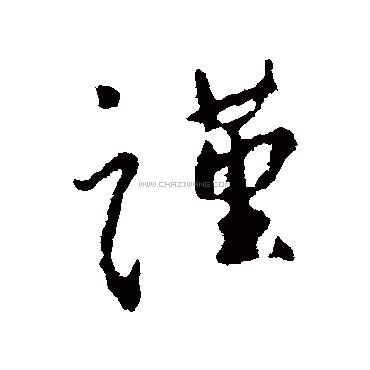 謹
WWW.CHAZIWANG.COM